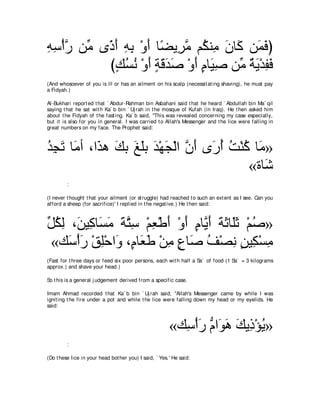 ﴿فَمَن كَانَ مِنكُم مَّرِيضًا أَوْ بِهِ أَذًى مِّن رَّأْسِهِ
فَفِدْيَةٌ مِّن صِيَامٍ أَوْ صَدَقَةٍ أَوْ نُسُكٍ﴾
(And whosoever of you is ill or has an ailment on his scalp (necessitating shaving), he must pay
a Fidyah.)
Al-Bukhari reported that `Abdur-Rahman bin Asbahani said that he heard `Abdullah bin Ma`qil
saying that he sat with Ka`b bin `Ujrah in the mosque of Kufah (in Iraq). He then asked him
about the Fidyah of the fasting. Ka`b said, "This was revealed concerning my case especially,
but it is also for you in general. I was carried to Allah's Messenger and the lice were falling in
great numbers on my face. The Prophet said:
«مَا كُنْتُ أُرَى أَنَّ الْجَهْدَ بَلَغَ بِكَ هذَا، أَمَا تَجِدُ
شَاةً»
:
(I never thought that your ailment (or struggle) had reached to such an extent as I see. Can you
afford a sheep (for sacrifice)' I replied in the negative.) He then said:
«صُمْ ثَلَاثَةَ أَيَّامٍ أَوْ أَطْعِمْ سِتَّةَ مَسَاكِينَ، لِكُلِّ
مِسْكِينٍ نِصْفُ صَاعٍ مِنْ طَعَامٍ، وَاحْلِقْ رَأْسَكَ»
(Fast for three days or feed six poor persons, each with half a Sa` of food (1 Sa` = 3 kilograms
approx.) and shave your head.)
So this is a general judgement derived from a specific case.
Imam Ahmad recorded that Ka`b bin `Ujrah said, "Allah's Messenger came by while I was
igniting the fire under a pot and while the lice were falling down my head or my eyelids. He
said:
«يُؤْذِيكَ هَوَامُّ رَأْسِكَ»
:
(Do these lice in your head bother you) I said, `Yes.' He said: